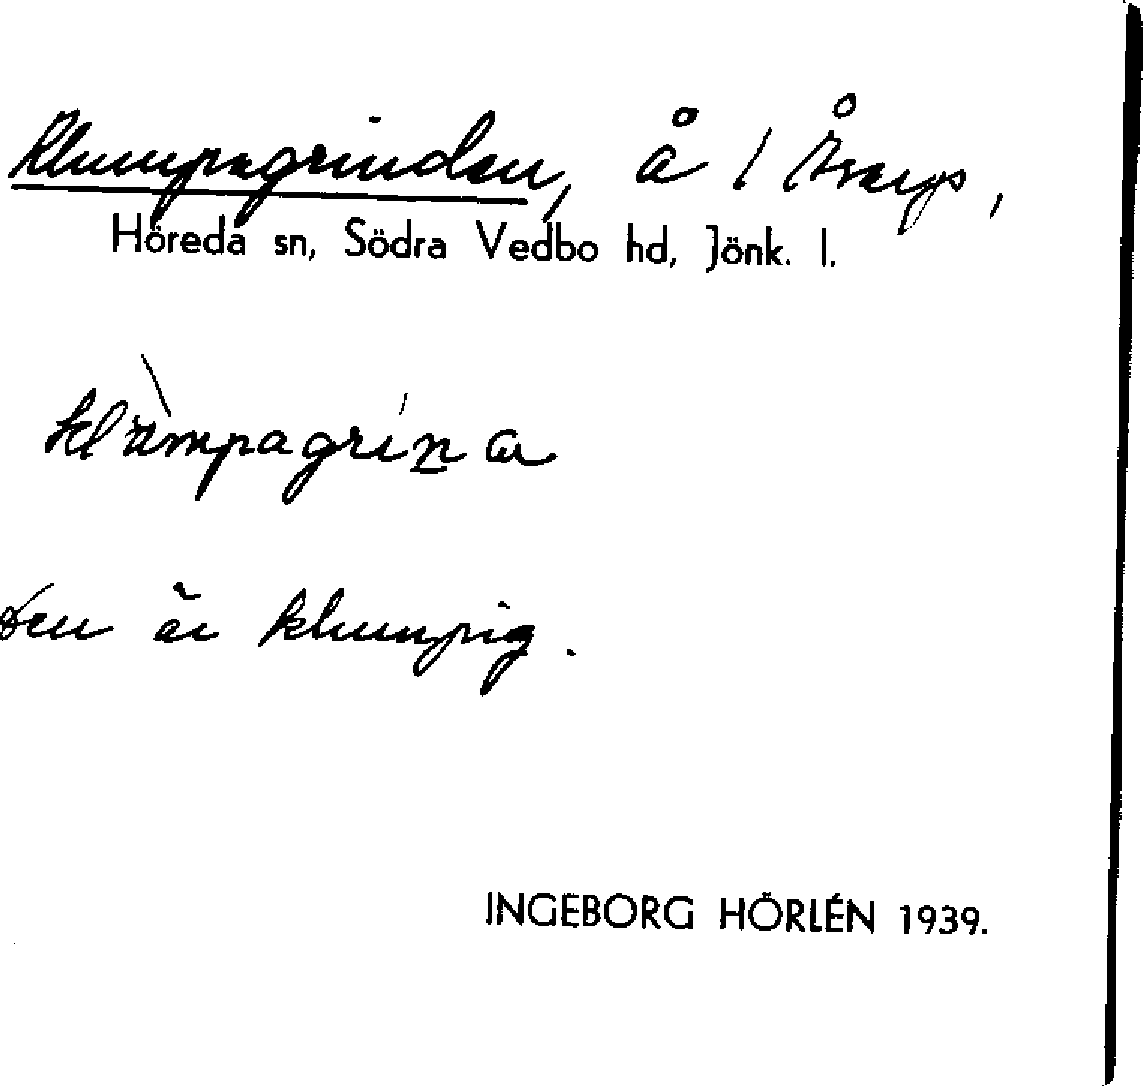 Klumpagrinden, å 1
Höreda sn, Södra Vedbo hd, Jönk. l.
klùmpagrína
den är klumpig.
INGEBORG HÖRLÉN 1939.